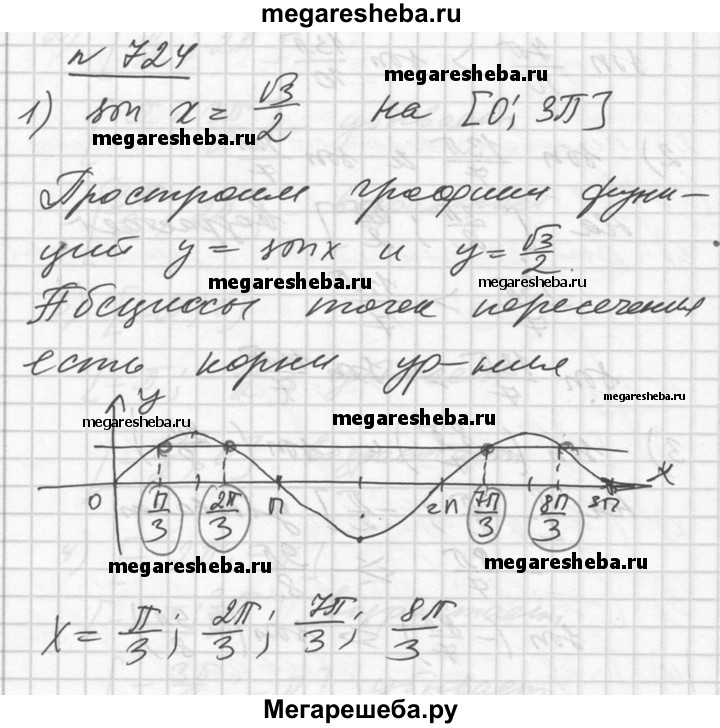 megaresheba.ru
№ 724
megaresheba.ru
1) sin x = √3/2 на [0; 3П]
megaresheba.ru
Простроим графики функ-
ций y = sin x и y = √3/2.
megaresheba.ru megaresheba.ru
Абсциссы точек пересечения
есть корни ур-ния
megaresheba.ru
y
megaresheba.ru megaresheba.ru
x
0 П/3 2П/3 П 2П 7П/3 8П/3 3П
megaresheba.ru megaresheba.ru
x = П/3; 2П/3; 7П/3; 8П/3
Мегарешеба.ру